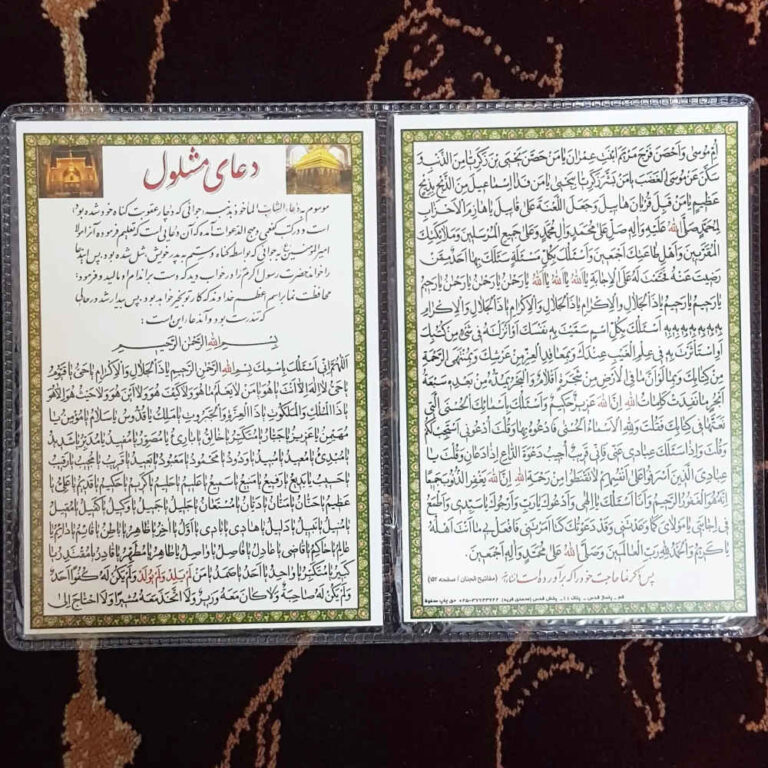 دعای مشلول
موسوم به دعاء الشاب المأخوذ بذنبه (جوانی که دچار عقوبت گناه خود شده بود)
است و در کتب کفعمی و مهج الدعوات آمده که آن دعایی است که تعلیم فرموده آنرا
امیرالمومنین(ع) به جوانی که بواسطه گناه و ستم به پدر خویش شل شده بود، پس این دعا
را خواند حضرت رسول اکرم را در خواب دید که دست بر اندام او مالید و فرمود:
محافظت نما بر اسم عظیم خداوند که کار تو بخیر خواهد بود، پس بیدار شد در حالی
که تندرست بود و آن دعا این است:
بِسْمِ اللهِ الرَّحْمنِ الرَّحیمِ
اَللّهُمَّ اِنّی اَسْئَلُکَ بِاسْمِکَ بِسْمِ اللهِ الرَّحْمنِ الرَّحیمِ یا ذَاالْجَلالِ وَالْاِکْرامِ یا حَیُّ یا قَیُّومُ
یا حَیُّ لا اِلهَ اِلّا اَنْتَ یا هُوَ یا مَنْ لا یَعْلَمُ ما هُوَ وَلا کَیْفَ هُوَ وَلا اَیْنَ هُوَ وَلا حَیْثُ هُوَ اِلّا هُوَ
یا ذَاالْمُلْکِ وَالْمَلَکُوتِ یا ذَاالْعِزَّةِ وَالْجَبَرُوتِ یا مَلِکُ یا قُدُّوسُ یا سَلامُ یا مُؤْمِنُ یا
مُهَیْمِنُ یا عَزیزُ یا جَبّارُ یا مُتَکَبِّرُ یا خالِقُ یا بارِئُ یا مُصَوِّرُ یا مُفیدُ یا مُدَبِّرُ یا شَدیدُ
یا مُبْدِئُ یا مُعیدُ یا مُبیدُ یا وَدُودُ یا مَحْمُودُ یا مَعْبُودُ یا بَعیدُ یا قَریبُ یا مُجیبُ یا رَقیبُ
یا حَسیبُ یا بَدیعُ یا رَفیعُ یا مَنیعُ یا سَمیعُ یا عَلیمُ یا حَلیمُ یا کَریمُ یا حَکیمُ یا قَدیمُ یا عَلِیُّ یا
عَظیمُ یا حَنّانُ یا مَنّانُ یا دَیّانُ یا مُسْتَعانُ یا جَلیلُ یا جَمیلُ یا وَکیلُ یا کَفیلُ یا مُقیلُ
یا مُنیلُ یا نَبیلُ یا دَلیلُ یا هادی یا بادی یا اَوَّلُ یا آخِرُ یا ظاهِرُ یا باطِنُ یا قائِمُ یا دائِمُ یا
عالِمُ یا حاکِمُ یا قاضی یا عادِلُ یا فاصِلُ یا واصِلُ یا طاهِرُ یا مُطَهِّرُ یا قادِرُ یا مُقْتَدِرُ یا
کَبیرُ یا مُتَکَبِّرُ یا واحِدُ یا اَحَدُ یا صَمَدُ یا مَنْ لَمْ یَلِدْ وَلَمْ یُولَدْ وَلَمْ یَکُنْ لَهُ کُفُوًا اَحَدٌ
وَلَمْ یَکُنْ لَهُ صاحِبَةٌ وَلا کانَ مَعَهُ وَزیرٌ وَلَا اتَّخَذَ مَعَهُ مُشیرًا وَلَا احْتاجَ اِلی
اُمِّ مُوسی وَاَحْصَنَ فَرْجَ مَرْیَمَ ابْنَتِ عِمْرانَ یا مَنْ حَصَّنَ یَحْیَی بْنَ زَکَرِیّا مِنَ الذَّنْبِ
سَکَّنَ عَنْ مُوسَی الْغَضَبَ یا مَنْ بَشَّرَ زَکَرِیّا بِیَحْیی یا مَنْ فَدا اِسْماعیلَ مِنَ الذَّبْحِ بِذِبْحٍ
عَظیمٍ یا مَنْ قَبِلَ قُرْبانَ هابیلَ وَجَعَلَ اللَّعْنَةَ عَلی قابیلَ یا هازِمَ الْاَحْزابِ
لِمُحَمَّدٍ صَلَّی اللهُ عَلَیْهِ وَآلِهِ صَلِّ عَلی مُحَمَّدٍ وَآلِ مُحَمَّدٍ وَعَلی جَمیعِ الْمُرْسَلینَ وَمَلائِکَتِکَ
الْمُقَرَّبینَ وَاَهْلِ طاعَتِکَ اَجْمَعینَ وَاَسْئَلُکَ بِکُلِّ مَسْئَلَةٍ سَئَلَکَ بِها اَحَدٌ مِمَّنْ
رَضیتَ عَنْهُ فَحَتَمْتَ لَهُ عَلَی الْاِجابَةِ یا اَللهُ یا اَللهُ یا اَللهُ یا رَحْمنُ یا رَحْمنُ یا رَحْمنُ یا رَحیمُ
یا رَحیمُ یا رَحیمُ یا ذَاالْجَلالِ وَالْاِکْرامِ یا ذَاالْجَلالِ وَالْاِکْرامِ یا ذَاالْجَلالِ وَالْاِکْرامِ
بِهِ بِهِ بِهِ بِهِ بِهِ بِهِ بِهِ اَسْئَلُکَ بِکُلِّ اسْمٍ سَمَّیْتَ بِهِ نَفْسَکَ اَوْ اَنْزَلْتَهُ فی شَیْءٍ مِنْ کُتُبِکَ
اَوِ اسْتَاْثَرْتَ بِهِ فی عِلْمِ الْغَیْبِ عِنْدَکَ وَبِمَعاقِدِ الْعِزِّ مِنْ عَرْشِکَ وَبِمُنْتَهَی الرَّحْمَةِ
مِنْ کِتابِکَ وَبِما لَوْ اَنَّ ما فِی الْاَرْضِ مِنْ شَجَرَةٍ اَقْلامٌ وَالْبَحْرُ یَمُدُّهُ مِنْ بَعْدِهِ سَبْعَةُ
اَبْحُرٍ ما نَفِدَتْ کَلِماتُ اللهِ اِنَّ اللهَ عَزیزٌ حَکیمٌ وَاَسْئَلُکَ بِاَسْمائِکَ الْحُسْنَی الَّتی
نَعَتَّها فی کِتابِکَ فَقُلْتَ وَلِلهِ الْاَسْماءُ الْحُسْنی فَادْعُوهُ بِها وَقُلْتَ اُدْعُونی اَسْتَجِبْ لَکُمْ
وَقُلْتَ وَاِذا سَئَلَکَ عِبادی عَنّی فَاِنّی قَریبٌ اُجیبُ دَعْوَةَ الدّاعِ اِذا دَعانِ وَقُلْتَ یا
عِبادِیَ الَّذینَ اَسْرَفُوا عَلی اَنْفُسِهِمْ لا تَقْنَطُوا مِنْ رَحْمَةِ اللهِ اِنَّ اللهَ یَغْفِرُ الذُّنُوبَ جَمیعًا
اِنَّهُ هُوَ الْغَفُورُ الرَّحیمُ وَاَنَا اَسْئَلُکَ یا اِلهی وَاَدْعُوکَ یا رَبِّ وَاَرْجُوکَ یا سَیِّدی وَاَطْمَعُ
فی اِجابَتی یا مَوْلایَ کَما وَعَدْتَنی وَقَدْ دَعَوْتُکَ کَما اَمَرْتَنی فَافْعَلْ بی ما اَنْتَ اَهْلُهُ
یا کَریمُ وَالْحَمْدُ لِلهِ رَبِّ الْعالَمینَ وَصَلَّی اللهُ عَلی مُحَمَّدٍ وَآلِهِ اَجْمَعینَ.
پس ذکر نما حاجت خود را که برآورده است انشاءالله (مفاتیح الجنان / صفحه ۵۲)
قم - پاساژ قدس - پلاک ۱۱ - پخش قدس (محمدی فرید) ۳۷۷۴۳۷۴۲-۰۲۵ حق چاپ محفوظ